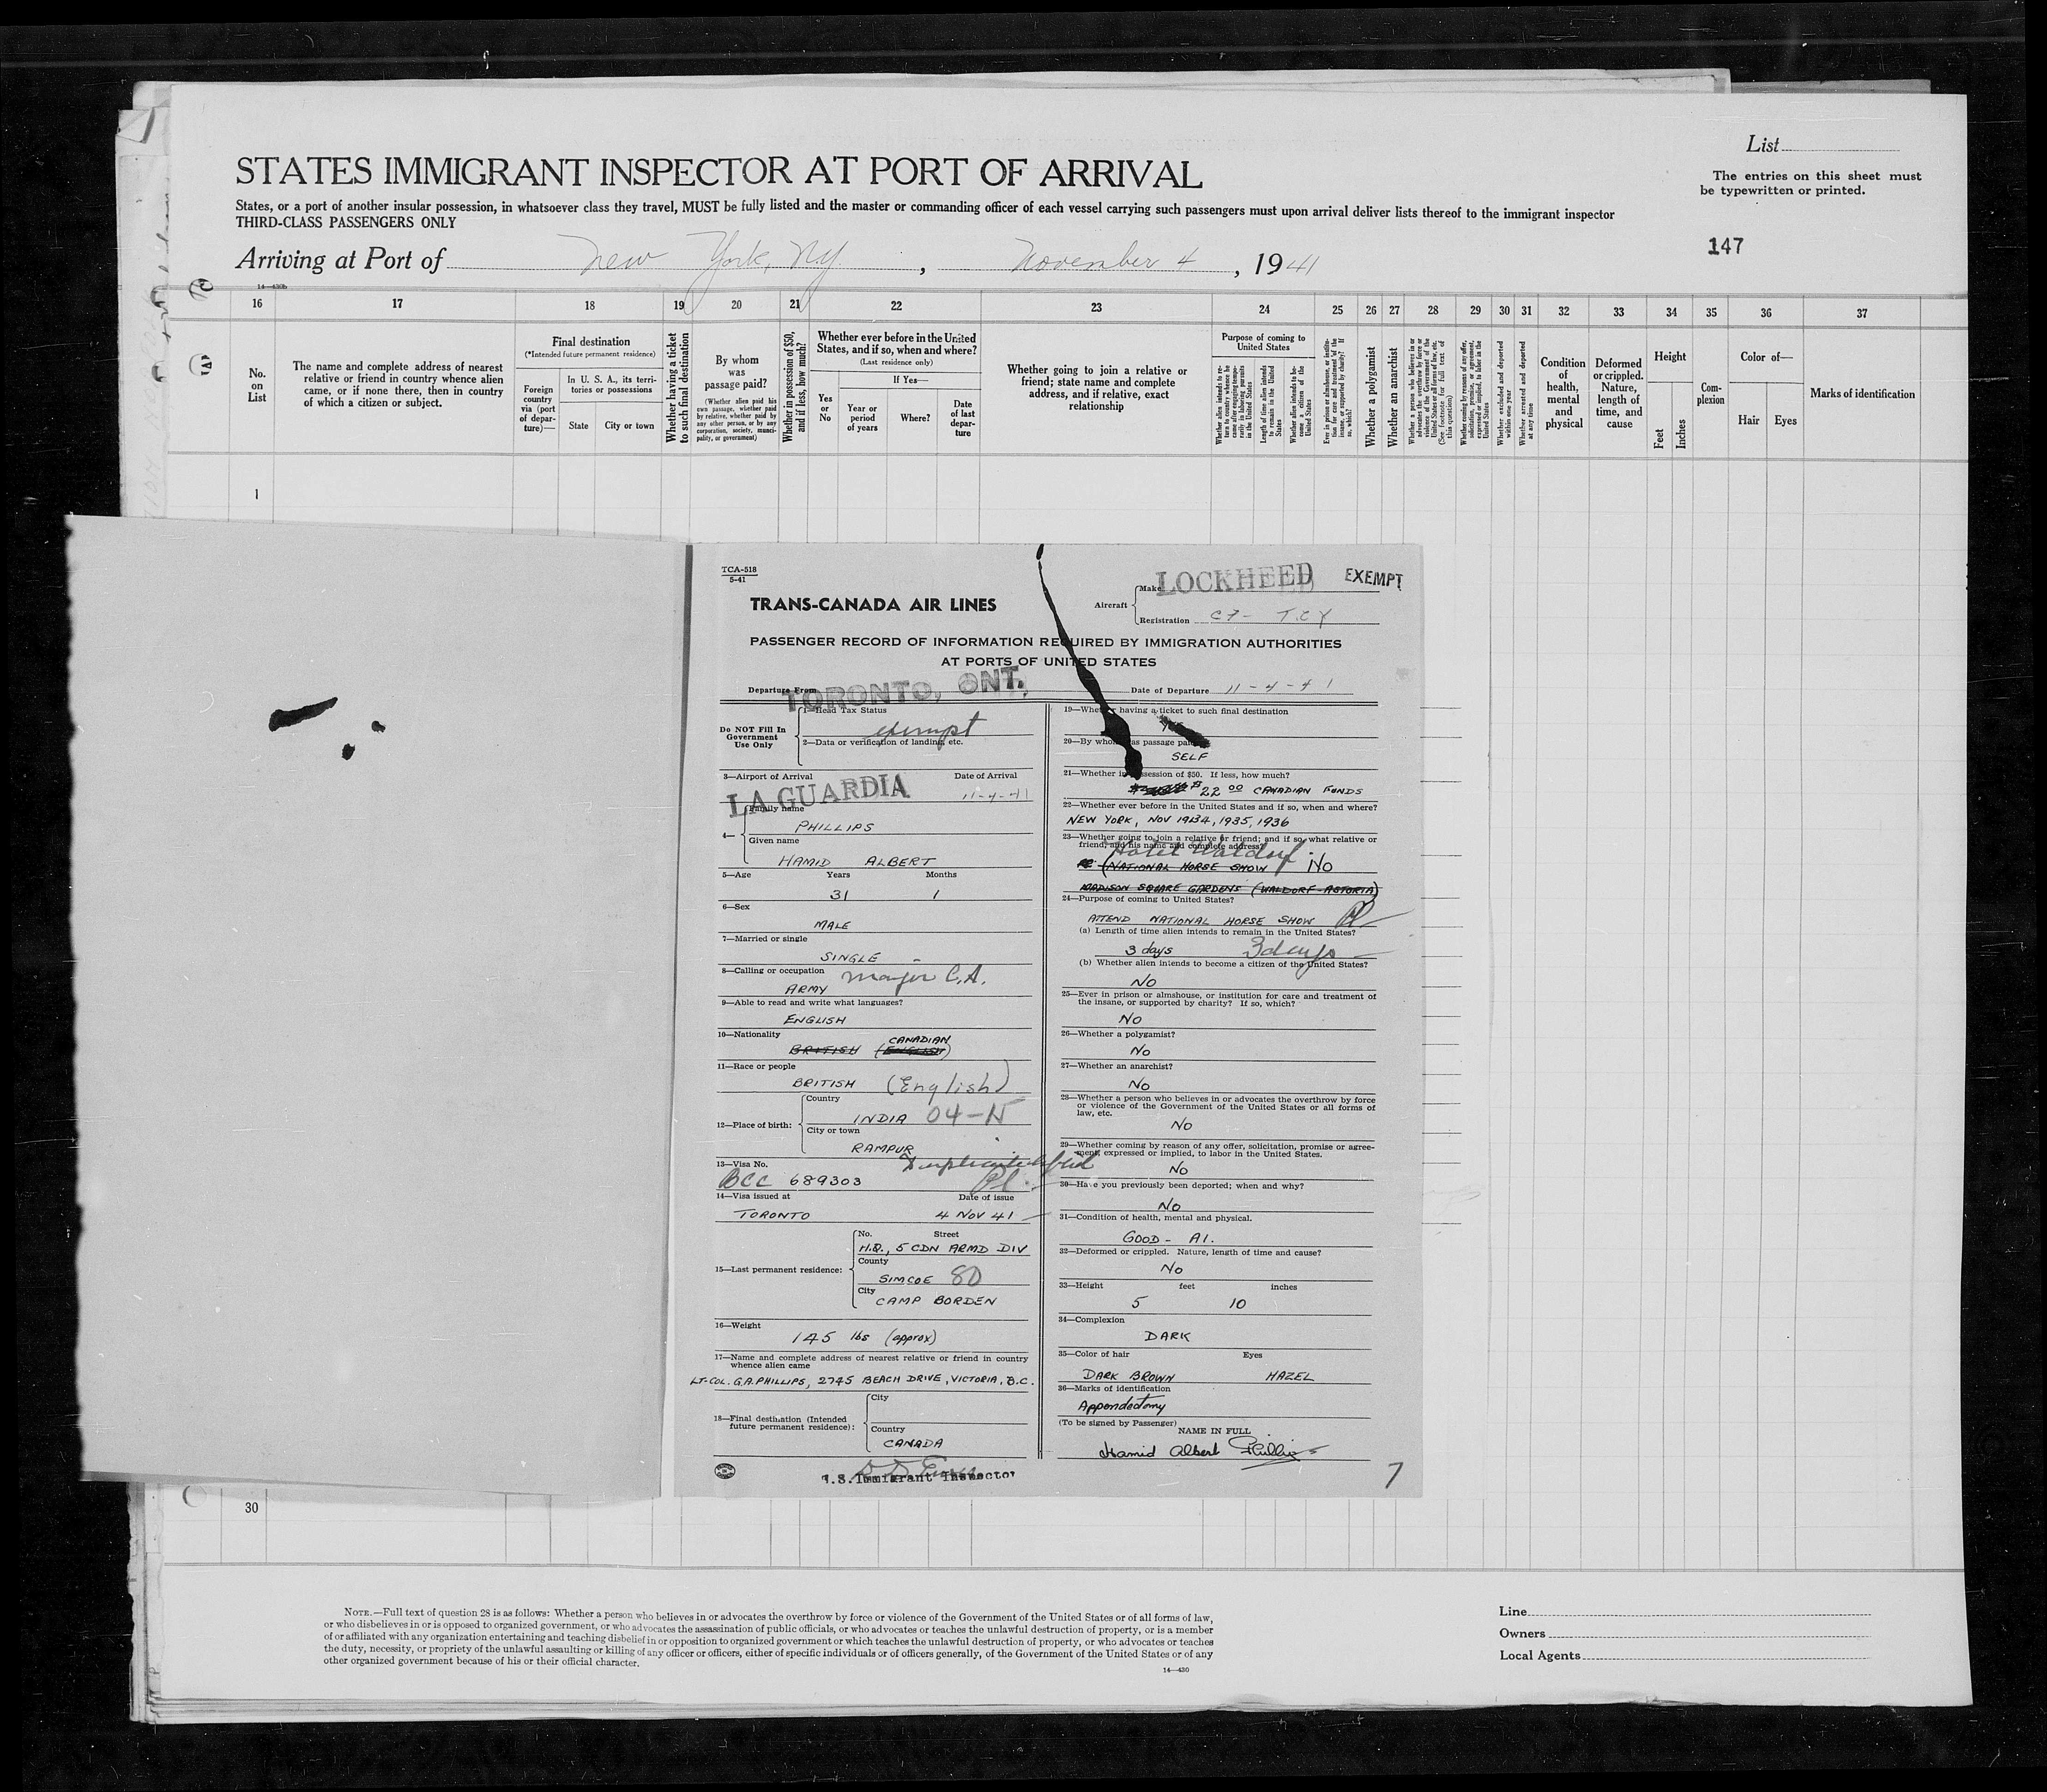 List
The entries on this sheet must
be typewritten or printed.
STATES IMMIGRANT INSPECTOR AT PORT OF ARRIVAL
States, or a port of another insular possession, in whatsoever class they travel, MUST be fully listed and the master or commanding officer of each vessel carrying such passengers must upon arrival deliver lists thereof to the immigrant inspector
THIRD-CLASS PASSENGERS ONLY
147
Arriving at Port of New York, N.Y. , November 4 , 1941
14—430b
16 17 18 19 20 21 22 23 24 25 26 27 28 29 30 31 32 33 34 35 36 37
No.
on
List
The name and complete address of nearest
relative or friend in country whence alien
came, or if none there, then in country
of which a citizen or subject.
Final destination
(*Intended future permanent residence)
Foreign
country
via (port
of depar-
ture)—
In U. S. A., its terri-
tories or possessions
State
City or town
Whether having a ticket
to such final destination
By whom
was
passage paid?
(Whether alien paid his
own passage, whether paid
by relative, whether paid by
any other person, or by any
corporation, society, munici-
pality, or government)
Whether in possession of $50,
and if less, how much?
Whether ever before in the United
States, and if so, when and where?
(Last residence only)
Yes
or
No
If Yes—
Year or
period
of years
Where?
Date
of last
depar-
ture
Whether going to join a relative or
friend; state name and complete
address, and if relative, exact
relationship
Purpose of coming to
United States
Whether alien intends to re-
turn to country whence he
came after engaging tempo-
rarily in laboring pursuits
in the United States
Length of time alien intends
to remain in the United
States
Whether alien intends to be-
come a citizen of the
United States
Ever in prison or almshouse, or institu-
tion for care and treatment of the
insane, or supported by charity? If
so, which?
Whether a polygamist
Whether an anarchist
Whether a person who believes in or
advocates the overthrow by force or
violence of the Government of the
United States or all forms of law, etc.
(See footnote for full text of
this question)
Whether coming by reasons of any offer,
solicitation, promise, or agreement,
expressed or implied, to labor in the
United States
Whether excluded and deported
within one year
Whether arrested and deported
at any time
Condition
of
health,
mental
and
physical
Deformed
or crippled.
Nature,
length of
time, and
cause
Height
Feet
Inches
Com-
plexion
Color of—
Hair
Eyes
Marks of identification
1
TCA-518
5-41
TRANS-CANADA AIR LINES
Aircraft
Make LOCKHEED
EXEMPT
Registration CF- T.C.Y
PASSENGER RECORD OF INFORMATION REQUIRED BY IMMIGRATION AUTHORITIES
AT PORTS OF UNITED STATES
Departure From TORONTO, ONT.
Date of Departure 11-4-41
Do NOT Fill In
Government
Use Only
1—Head Tax Status
exempt
2—Data or verification of landing, etc.
3—Airport of Arrival Date of Arrival
LA GUARDIA 11-4-41
4—
Family name
PHILLIPS
Given name
HAMID ALBERT
5—Age Years Months
31 1
6—Sex
MALE
7—Married or single
SINGLE
8—Calling or occupation Major C.A.
ARMY
9—Able to read and write what languages?
ENGLISH
10—Nationality CANADIAN
BRITISH (ENGLISH)
11—Race or people
BRITISH (English)
12—Place of birth:
Country
INDIA 04-N
City or town
RAMPUR
13—Visa No.
BCC 689303
14—Visa issued at Date of issue
TORONTO 4 NOV 41
15—Last permanent residence:
No. Street
H.Q., 5 CDN ARMD DIV
County
SIMCOE 80
City
CAMP BORDEN
16—Weight
145 lbs (approx)
17—Name and complete address of nearest relative or friend in country
whence alien came
LT-COL. G.A. PHILLIPS, 2745 BEACH DRIVE, VICTORIA, B.C.
18—Final destination (Intended
future permanent residence):
City
Country
CANADA
U.S. Immigrant Inspector
19—Whether having a ticket to such final destination
YES
20—By whom was passage paid
SELF
21—Whether in possession of $50. If less, how much?
$22 00 CANADIAN FUNDS
22—Whether ever before in the United States and if so, when and where?
NEW YORK, NOV 1934, 1935, 1936
23—Whether going to join a relative or friend; and if so what relative or
friend, and his name and complete address?
Hotel Waldorf
(NATIONAL HORSE SHOW No
MADISON SQUARE GARDENS (WALDORF-ASTORIA)
24—Purpose of coming to United States?
ATTEND NATIONAL HORSE SHOW
(a) Length of time alien intends to remain in the United States?
3 days 3 days
(b) Whether alien intends to become a citizen of the United States?
NO
25—Ever in prison or almshouse, or institution for care and treatment of
the insane, or supported by charity? If so, which?
No
26—Whether a polygamist?
No
27—Whether an anarchist?
No
28—Whether a person who believes in or advocates the overthrow by force
or violence of the Government of the United States or all forms of
law, etc.
No
29—Whether coming by reason of any offer, solicitation, promise or agree-
ment, expressed or implied, to labor in the United States.
No
30—Have you previously been deported; when and why?
No
31—Condition of health, mental and physical.
GOOD - A1.
32—Deformed or crippled. Nature, length of time and cause?
No
33—Height feet inches
5 10
34—Complexion
DARK
35—Color of hair Eyes
DARK BROWN HAZEL
36—Marks of identification
Appendectomy
(To be signed by Passenger)
NAME IN FULL
Hamid Albert Phillips
7
30
NOTE.—Full text of question 28 is as follows: Whether a person who believes in or advocates the overthrow by force or violence of the Government of the United States or of all forms of law,
or who disbelieves in or is opposed to organized government, or who advocates the assassination of public officials, or who advocates or teaches the unlawful destruction of property, or is a member
of or affiliated with any organization entertaining and teaching disbelief in or opposition to organized government or which teaches the unlawful destruction of property, or who advocates or teaches
the duty, necessity, or propriety of the unlawful assaulting or killing of any officer or officers, either of specific individuals or of officers generally, of the Government of the United States or of any
other organized government because of his or their official character.
14—430
Line
Owners
Local Agents